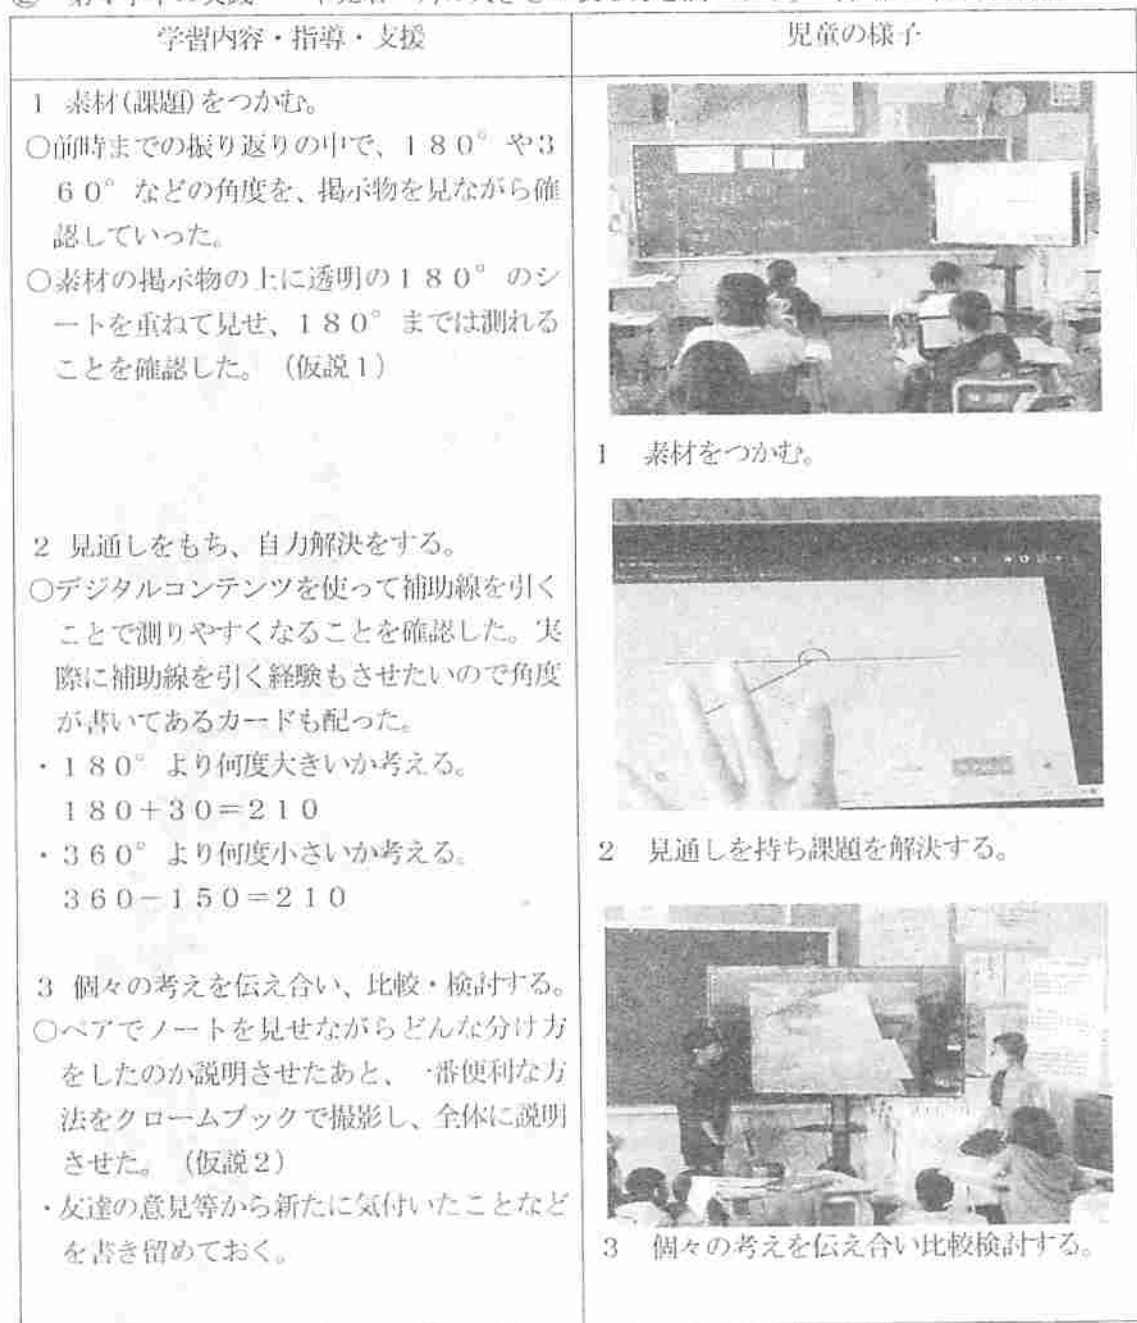 学習内容・指導・支援
児童の様子
1 素材(課題)をつかむ。
○前時までの振り返りの中で、180°や3
60°などの角度を、掲示物を見ながら確
認していった。
○素材の掲示物の上に透明の180°のシ
ートを重ねて見せ、180°までは測れる
ことを確認した。(仮説1)
1 素材をつかむ。
2 見通しをもち、自力解決をする。
○デジタルコンテンツを使って補助線を引く
ことで測りやすくなることを確認した。実
際に補助線を引く経験もさせたいので角度
が書いてあるカードも配った。
・180°より何度大きいか考える。
180+30=210
・360°より何度小さいか考える。
360-150=210
2 見通しを持ち課題を解決する。
3 個々の考えを伝え合い、比較・検討する。
○ペアでノートを見せながらどんな分け方
をしたのか説明させたあと、一番便利な方
法をクロームブックで撮影し、全体に説明
させた。(仮説2)
・友達の意見等から新たに気付いたことなど
を書き留めておく。
3 個々の考えを伝え合い比較検討する。